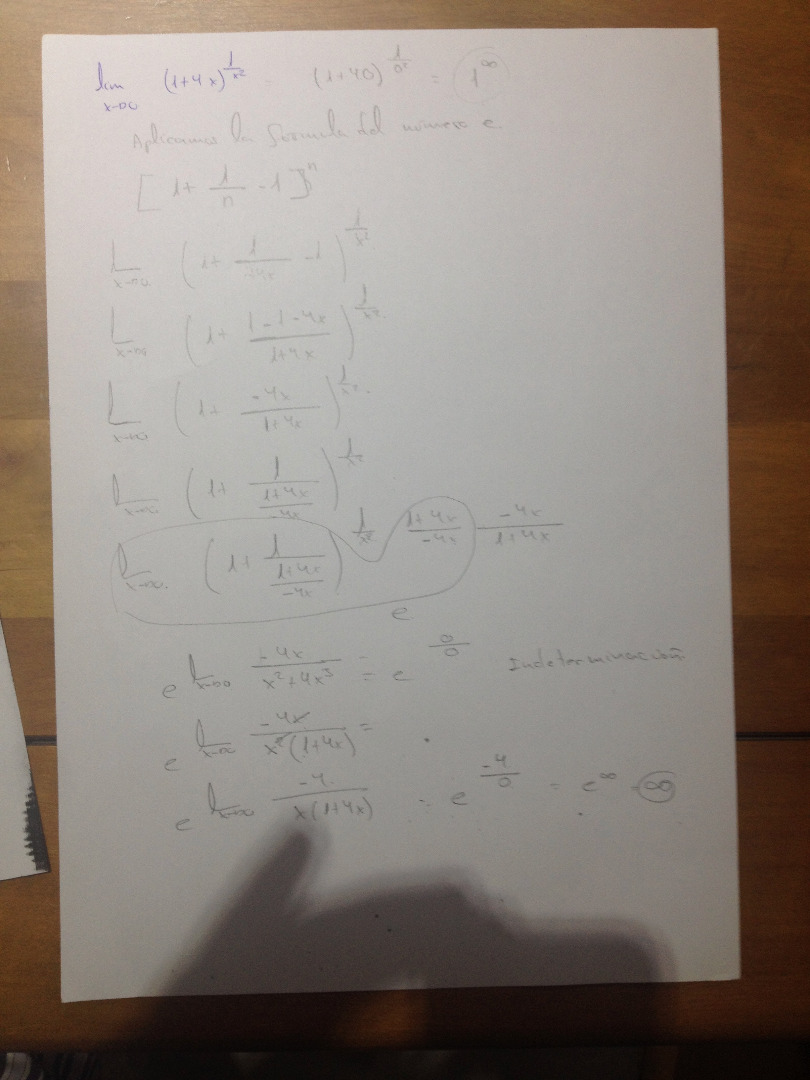 lim x→0 (1+4x)^(1/x²) = (1+4·0)^(1/0²) = 1^∞
Aplicamos la formula del número e.
[1 + 1/n - 1]^n
L x→0 (1 + 1/(1+4x) - 1)^(1/x²)
L x→0 (1 + (1-1-4x)/(1+4x))^(1/x²)
L x→0 (1 + (-4x)/(1+4x))^(1/x²)
L x→0 (1 + 1/((1+4x)/(-4x)))^(1/x²)
L x→0 (1 + 1/((1+4x)/(-4x)))^(1/x² · (1+4x)/(-4x) · (-4x)/(1+4x))
e
e^(L x→0 (-4x)/(x²+4x³)) = e^(0/0) Indeterminación.
e^(L x→0 (-4x)/(x²(1+4x))) =
e^(L x→0 (-4)/(x(1+4x))) = e^(-4/0) = e^∞ = ∞